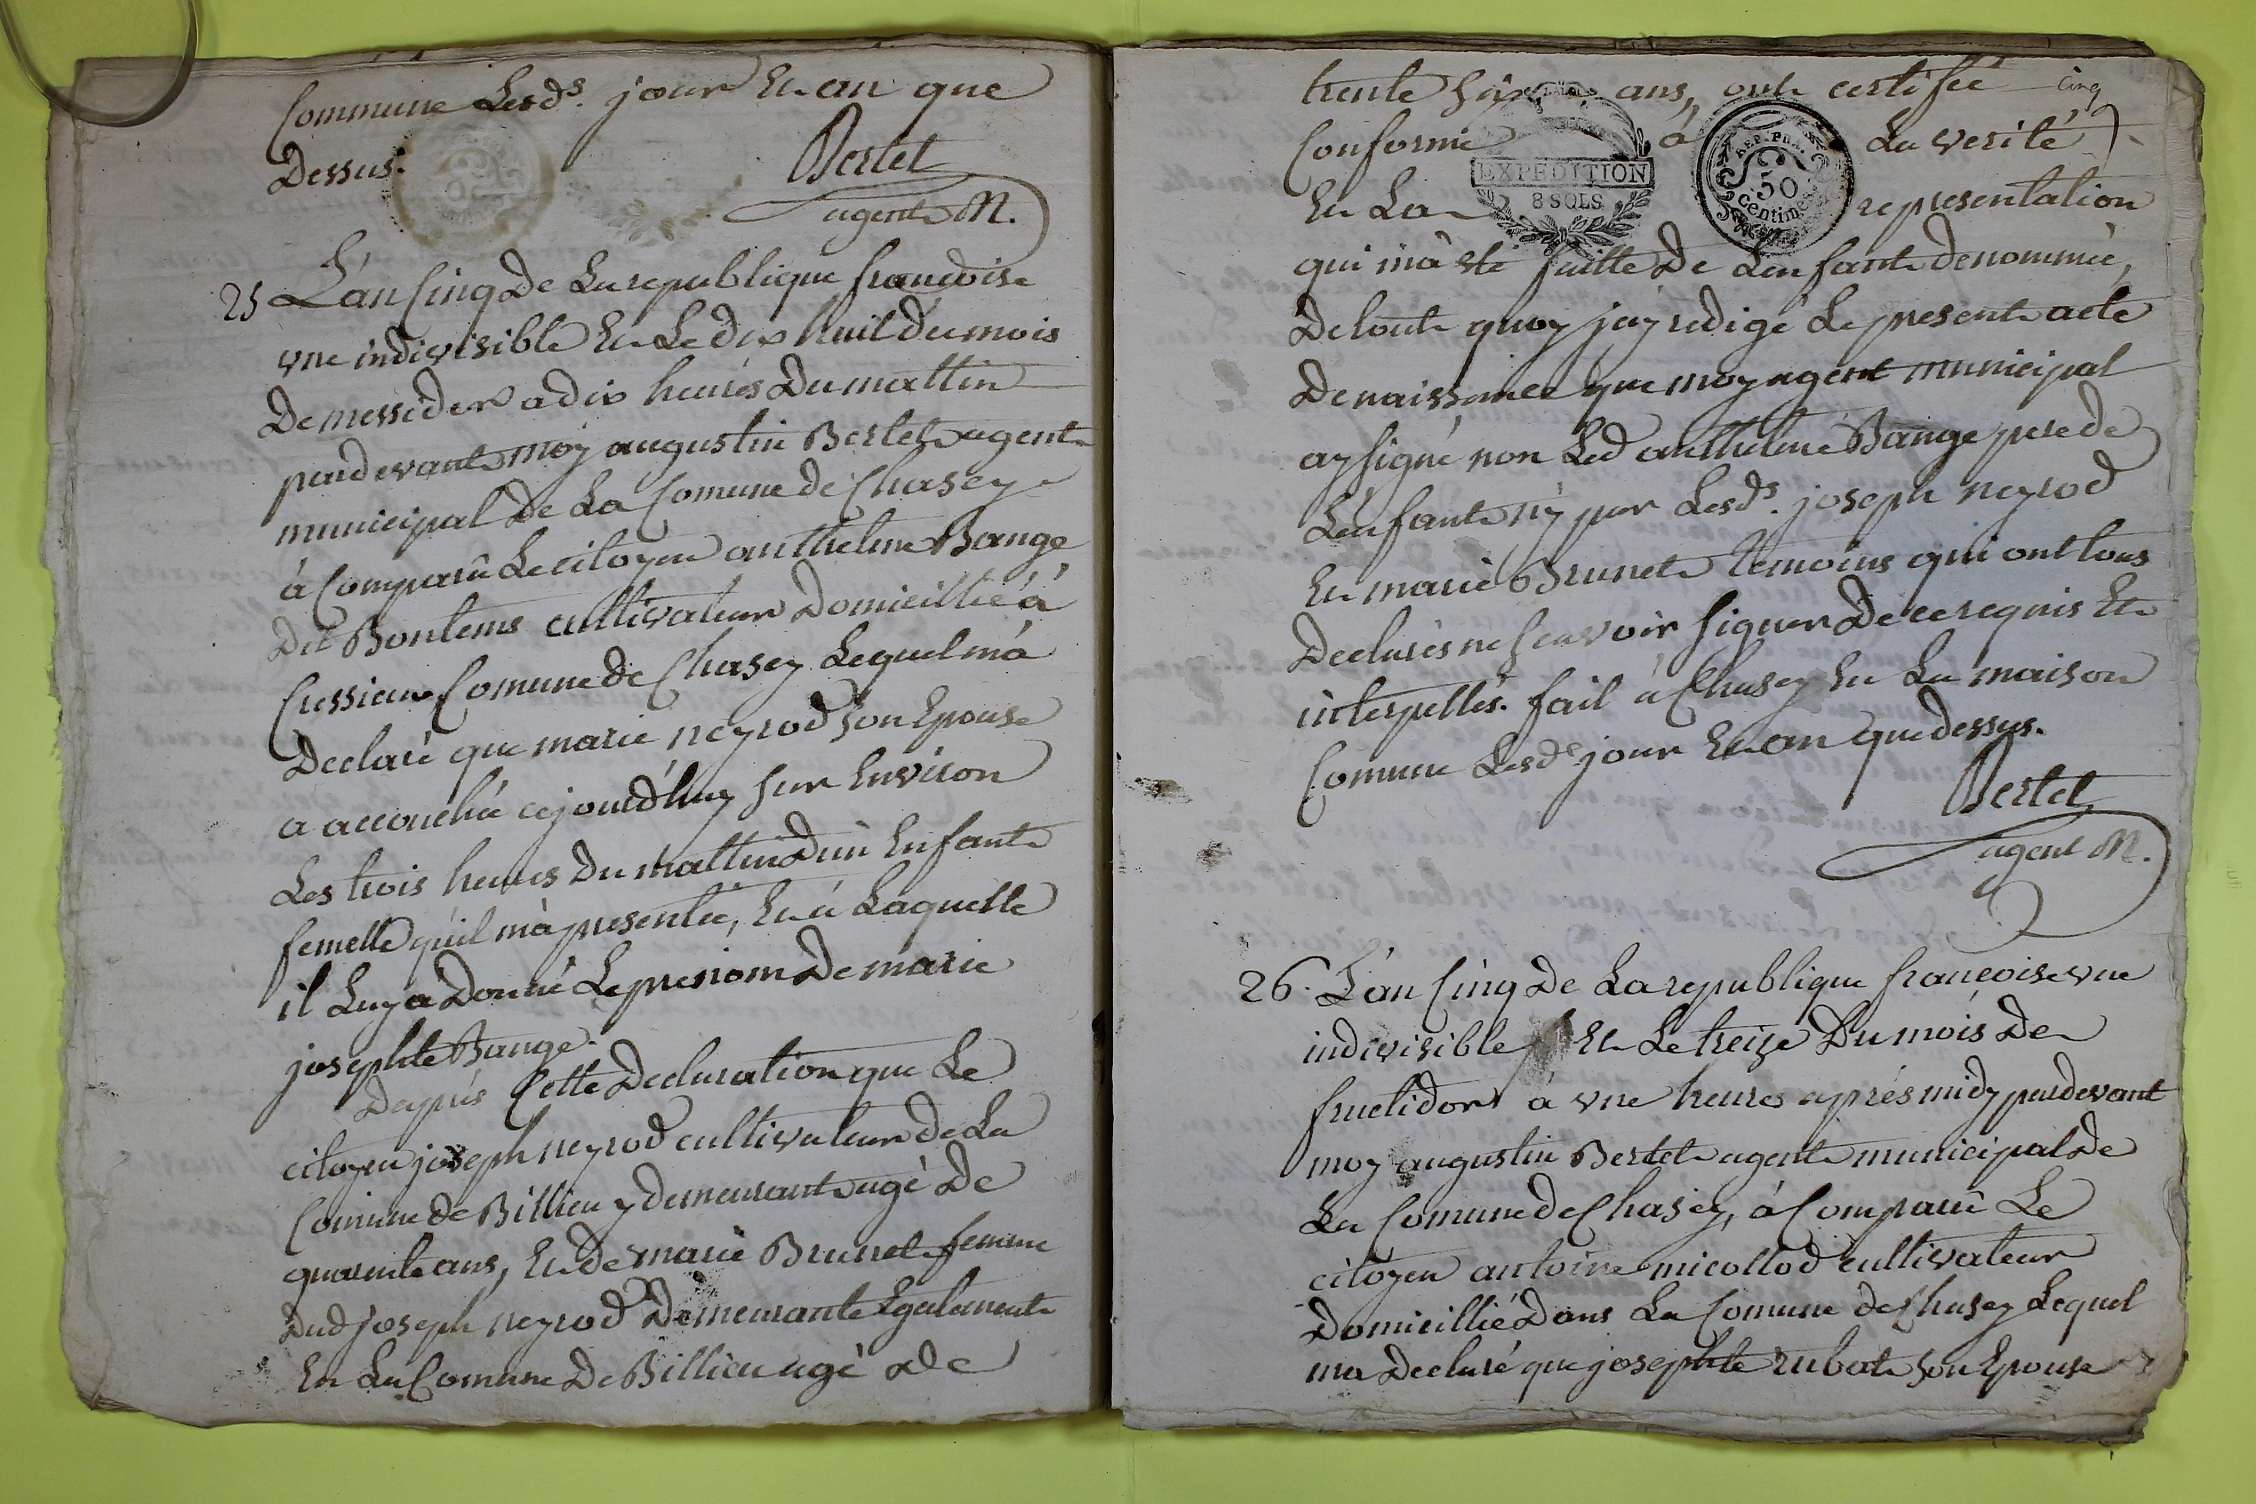 Commune Lesds. jour Et an que
Dessus.
Bertet
agent M.
25 L'an Cinq De La republique françoise
vne indivisible Et Le dix huit du mois
De messidor a dix heures Du mattin
pardevant moy augustin Bertet agent
municipal De La Comune de Chasey
à Comparû Le citoyen anthelme Bange
Dit Bontems cultivateur Domicillié à
Cressieu Comune de Chasey Lequel m'à
Declaré que marie neyrod son Epouse
a accouchée cejourd'huy sur Environ
Les trois heures Du mattin D'un Enfant
femelle qu'il m'à presentée, Et à Laquelle
il Luy a Donné Le prenom De marie
josephte Bange.
Daprés Cette Declaration que Le
citoyen joseph neyrod cultivateur de La
Comune de Billieu y demeurant agé De
quarente ans, Et de marie Brunet femme
Dud joseph neyrod Demeurante Egalement
En La Comune De Billieu agé De
trente six ans, ont certifié
cinq
Conforme à La verité
EXPEDITION
8 SOLS
REP. FRA.
50
centimes
Et La representation
qui m'à eté faitte De L'enfant denommée,
De tout quoy j'ay redigé Le present acte
De naissance que moy agent municipal
ay signé non Led anthelme Bange pere de
L'enfant ny par Lesds. joseph neyrod
Et marie Brunet temoins qui ont tous
Declarés ne sçavoir signer De ce requis Et
interpellés. fait à Chasey En La maison
Comune Lesds jour Et an que dessus.
Bertet
agent M.
26. L'an Cinq De La republique françoise vne
indivisible Et Le treize Du mois De
fructidor à vne heures aprés midy pardevant
moy augustin Bertet agent municipal De
La Comune de Chasey, à Comparû Le
citoyen antoine micollod cultivateur
Domicillié Dans La Comune de Chasey Lequel
ma Declaré que josephte rubat son Epouse